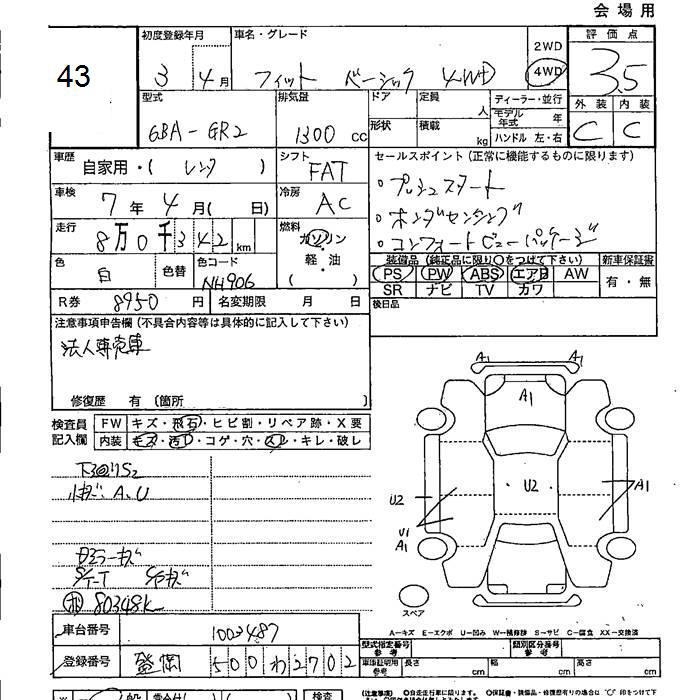 会場用
43
初度登録年月
3 4月
車名・グレード
フィット ベーシック 4WD
2WD
4WD
評価点
3.5
外装 内装
C C
型式
6BA-GR2
排気量
1300 cc
ドア
形状
定員 人
積載 kg
ディーラー・並行
モデル年式 年
ハンドル 左・右
車歴
自家用・( レンタ )
シフト
FAT
セールスポイント (正常に機能するものに限ります)
・プッシュスタート
・ホンダセンシング
・コンフォートビューパッケージ
車検
7年 4月( 日)
冷房
AC
走行
8万0千342km
燃料
ガソリン
・軽・油
( )
色
白
色替
色コード
NH906
R券 8950円 名変期限 月 日
装備品 (純正品に限り〇をつけて下さい)
新車保証書
PS PW ABS エアB AW
SR ナビ TV カワ
有・無
検日品
注意事項申告欄 (不具合内容等は具体的に記入して下さい)
法人専売車
修復歴 有 (箇所 )
検査員記入欄
FW キズ・飛石・ヒビ割・リペア跡・X要
内装 キズ・汚れ・コゲ・穴・スレ・キレ・破レ
A1 A1
A1
U2
U2
A1
U1
A1
スペア
80348K
A-キズ E-エクボ U-凹み W-補修跡 S-サビ C-腐食 XX-交換済
車台番号 1003487
登録番号 500わ2702
型式指定番号 参考
類別区分番号 参考
車庫証明用 参考 長さ cm 幅 cm 高さ cm
(注意事項)
検査